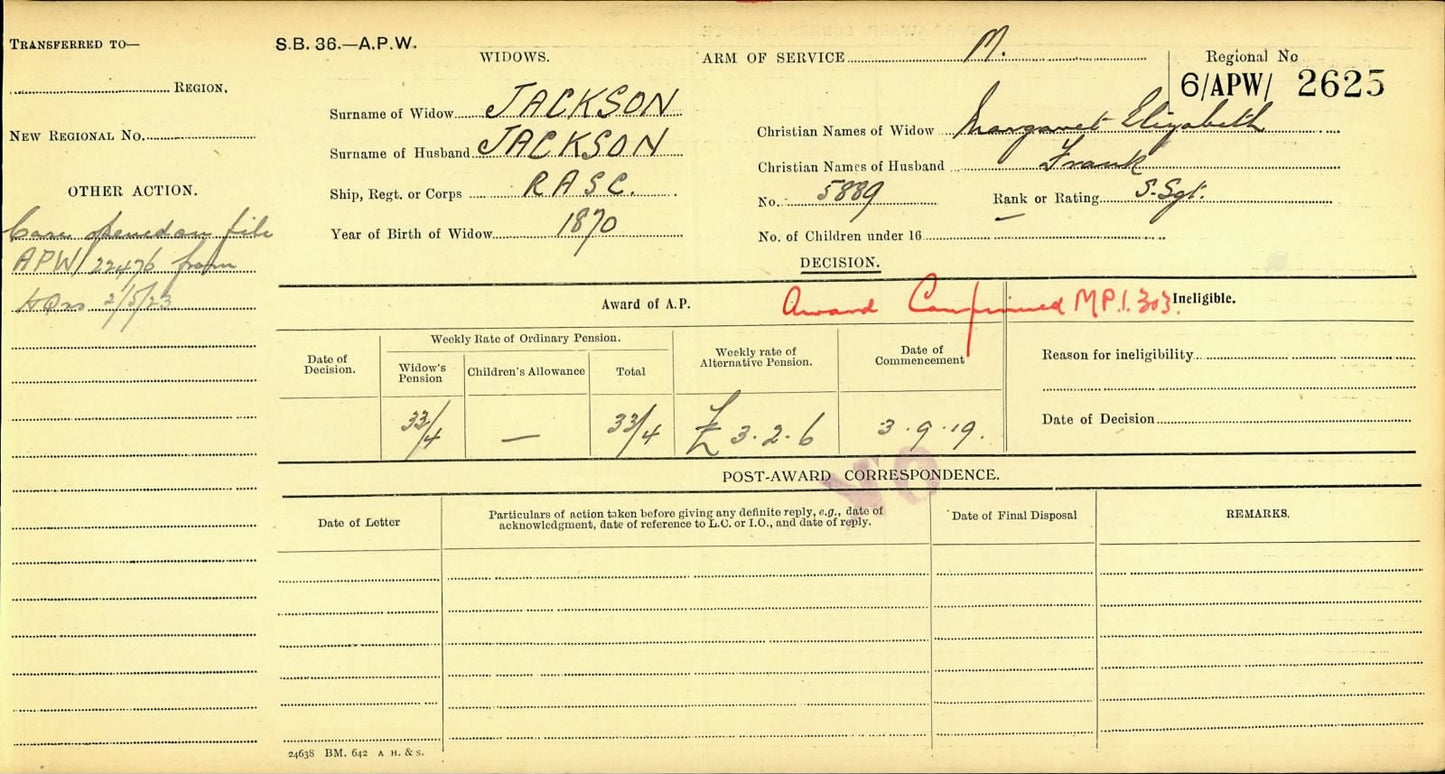 TRANSFERRED TO—
REGION.
NEW REGIONAL No.
OTHER ACTION.
Case opened on file
APW/22476 from
HQrs 2/5/23
S.B. 36.—A.P.W.
WIDOWS.
ARM OF SERVICE M.
Regional No
6/APW/ 2625
Surname of Widow JACKSON
Christian Names of Widow Margaret Elizabeth
Surname of Husband JACKSON
Christian Names of Husband Frank
Ship, Regt. or Corps RASC.
No. 5889 Rank or Rating S.Sgt.
Year of Birth of Widow 1870
No. of Children under 16 —
DECISION.
Award of A.P. Award Confirmed M.P.1.303.
Ineligible.
Date of Decision.
Weekly Rate of Ordinary Pension.
Widow's Pension
Children's Allowance
Total
Weekly rate of Alternative Pension.
Date of Commencement
33/4 — 33/4 £3.2.6 3.9.19.
Reason for ineligibility
Date of Decision
POST-AWARD CORRESPONDENCE.
Date of Letter
Particulars of action taken before giving any definite reply, e.g., date of
acknowledgment, date of reference to L.C. or I.O., and date of reply.
Date of Final Disposal
REMARKS.
24638 BM. 642 A H. & S.